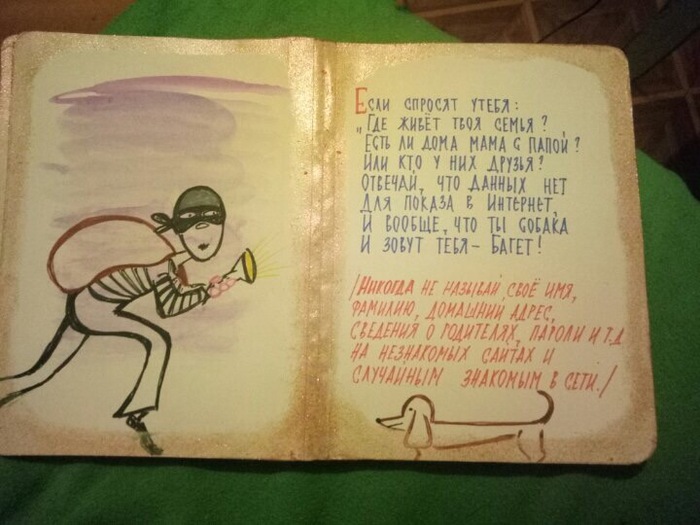 Если спросят у тебя:
„Где живёт твоя семья?
Есть ли дома мама с папой?
Или кто у них друзья?
Отвечай, что данных нет
Для показа в Интернет,
И вообще, что ты собака
И зовут тебя – Багет!
/Никогда не называй своё имя,
фамилию, домашний адрес,
сведения о родителях, пароли и т.д
на незнакомых сайтах и
случайным знакомым в сети./